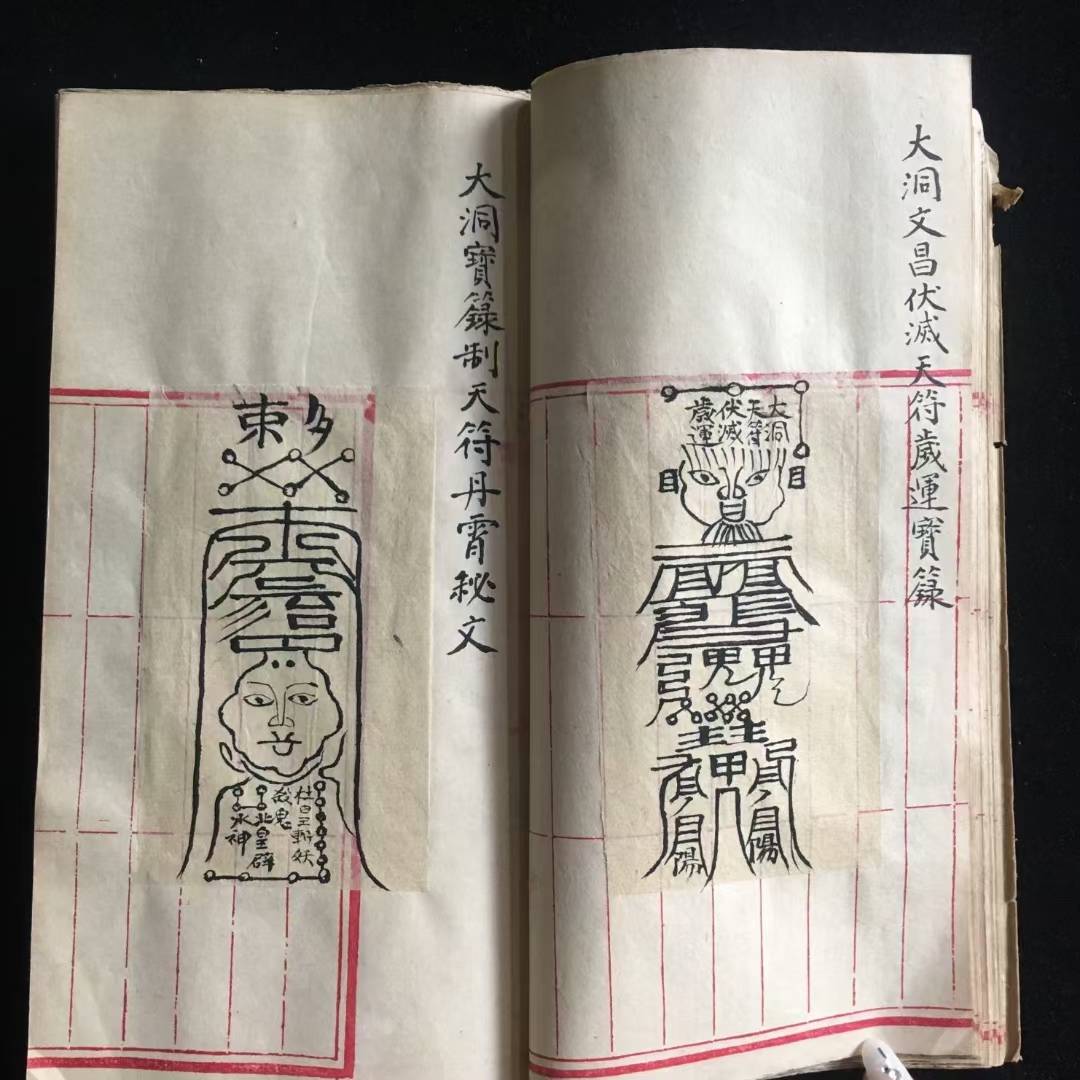 大洞文昌伏滅天符歲運寶籙
大洞
天符
伏滅
歲運
目
目
鬼
甲
目陽
目陽
大洞寶籙制天符丹霄秘文
斬妖
鬼
北皇
神